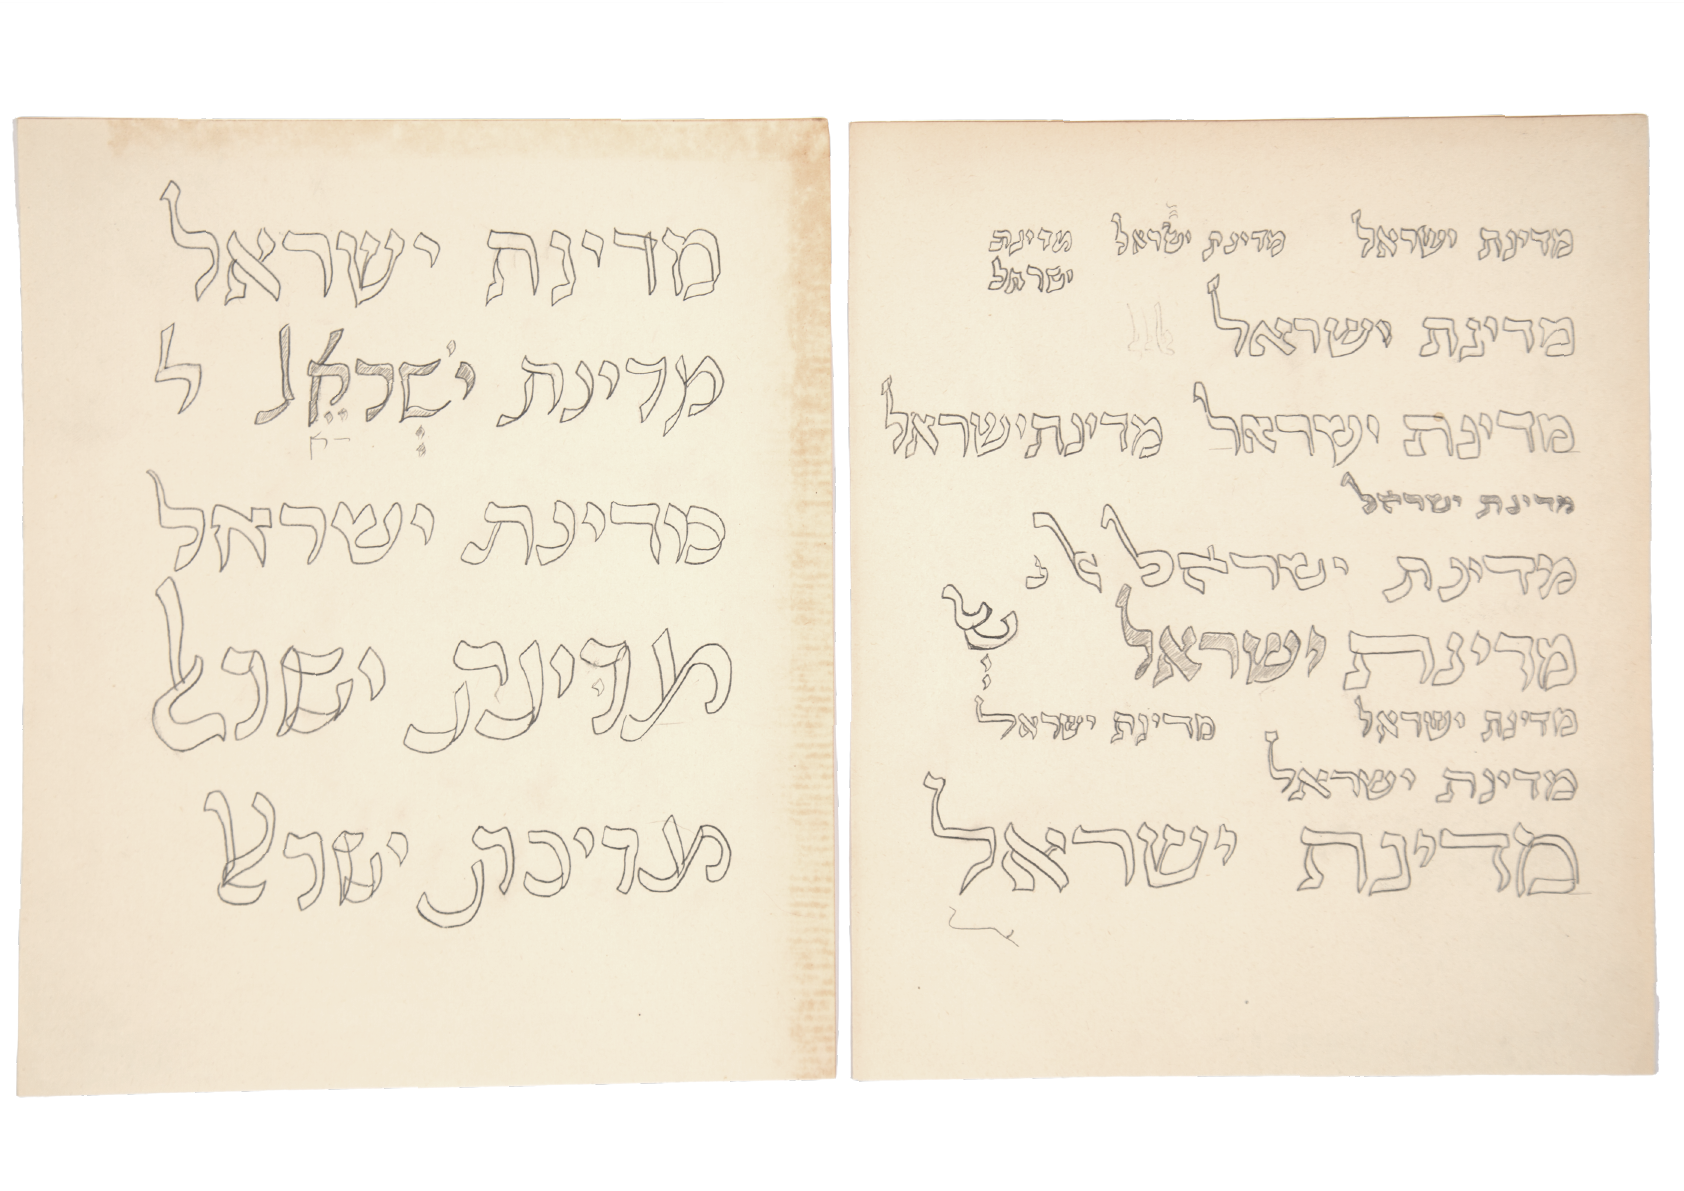 מדינת ישראל מדינת ישראל מדינת
ישראל
מדינת ישראל
מדינת ישראל מדינת ישראל
מדינת ישראל
מדינת ישראל
מדינת ישראל ש
מדינת ישראל מדינת ישראל
מדינת ישראל
מדינת ישראל
מדינת ישראל
מדינת ישראל ל
מדינת ישראל
מדינת ישרﭏ
מדינת ישרﭏ